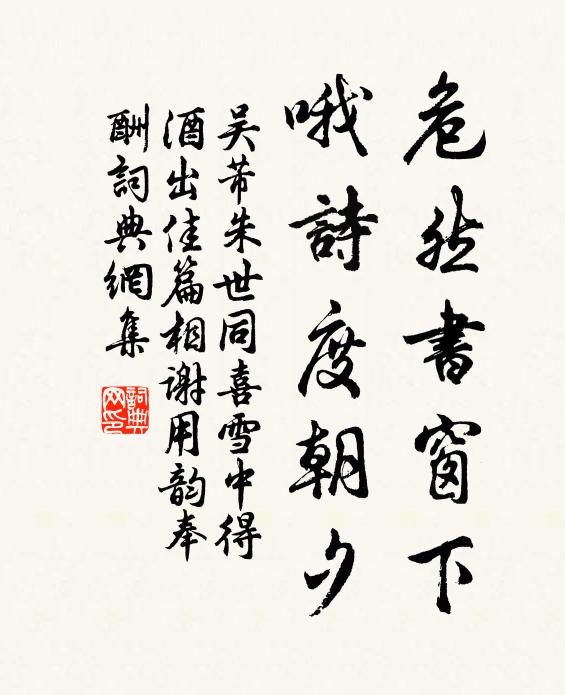 危然書窗下
哦詩度朝夕
吴芾朱世同喜雪中得
酒出佳篇相谢用韵奉
酬詞典網集
詞典网印